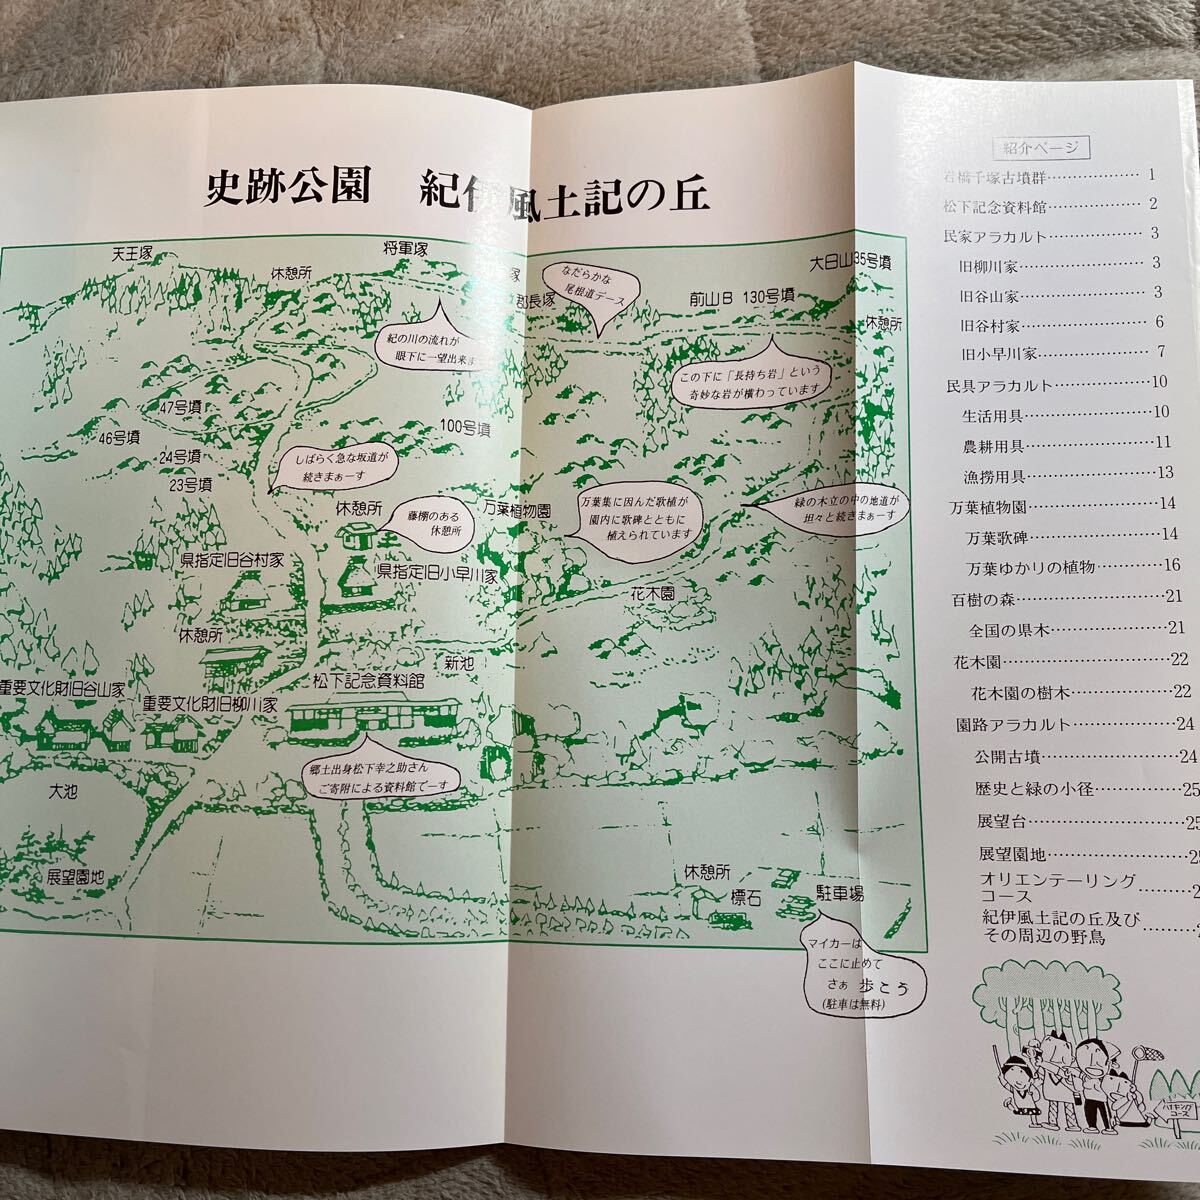 史跡公園 紀伊風土記の丘
天王塚
将軍塚
休憩所
郡長塚
なだらかな
尾根道デース
前山B 130号墳
大日山35号墳
休憩所
紀の川の流れが
眼下に一望出来ま
この下に「長持ち岩」という
奇妙な岩が横わっています
47号墳
46号墳
24号墳
23号墳
100号墳
しばらく急な坂道が
続きまぁーす
休憩所
藤棚のある
休憩所
万葉植物園
万葉集に因んだ歌植が
園内に歌碑とともに
植えられています
緑の木立の中の地道が
坦々と続きまぁーす
県指定旧谷村家
県指定旧小早川家
花木園
休憩所
新池
松下記念資料館
重要文化財旧谷山家
重要文化財旧柳川家
郷土出身松下幸之助さん
ご寄附による資料館でーす
大池
展望園地
休憩所
標石
駐車場
マイカーは
ここに止めて
さぁ 歩こう
(駐車は無料)
紹介ページ
岩橋千塚古墳群………………1
松下記念資料館………………2
民家アラカルト………………3
旧柳川家………………3
旧谷山家………………3
旧谷村家………………6
旧小早川家………………7
民具アラカルト………………10
生活用具………………10
農耕用具………………11
漁撈用具………………13
万葉植物園………………14
万葉歌碑………………14
万葉ゆかりの植物…………16
百樹の森………………21
全国の県木………………21
花木園………………22
花木園の樹木………………22
園路アラカルト………………24
公開古墳………………24
歴史と緑の小径……………25
展望台………………25
展望園地………………25
オリエンテーリング
コース………2
紀伊風土記の丘及び
その周辺の野鳥………2
ハイキング
コース